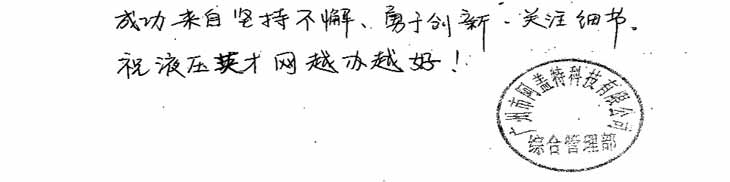 成功来自坚持不懈、勇于创新、关注细节。
祝液压英才网越办越好！
广州市阿盖特科技有限公司
综合管理部